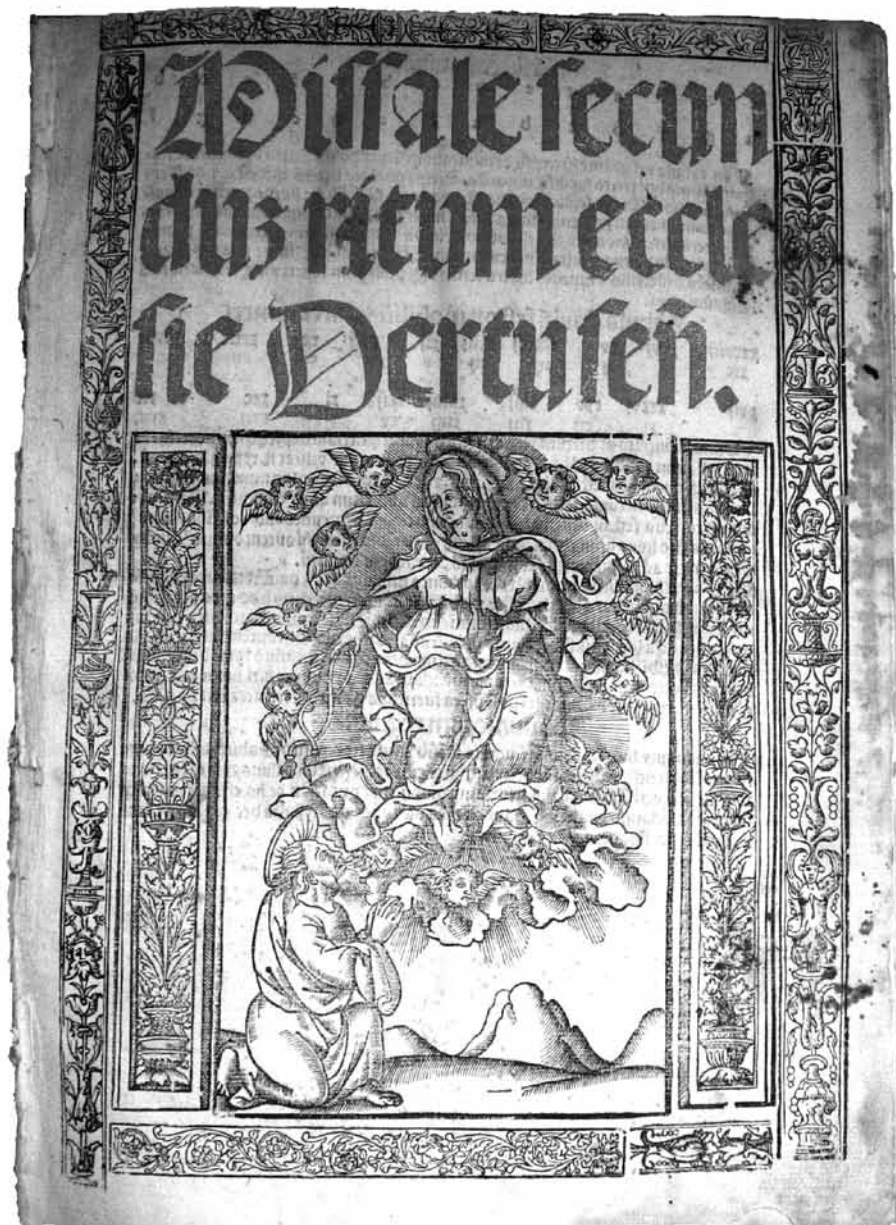 Missale secun
duz ritum eccle
sie Dertuseñ.